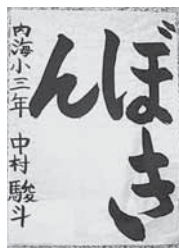 ぼき
ん
内海小三年 中村駿斗